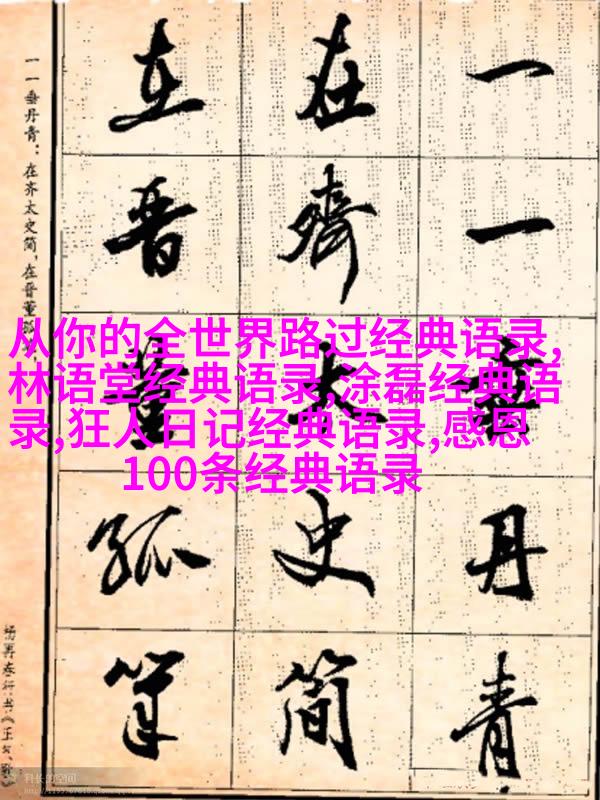 一一垂丹青
在齊太史简
在晋董狐筆
一一垂丹青：在齐太史简，在晋董狐
杨再春行书《正气歌
从你的全世界路过经典语录,
林语堂经典语录,涂磊经典语
录,狂人日记经典语录,感恩
100条经典语录
科长的空间